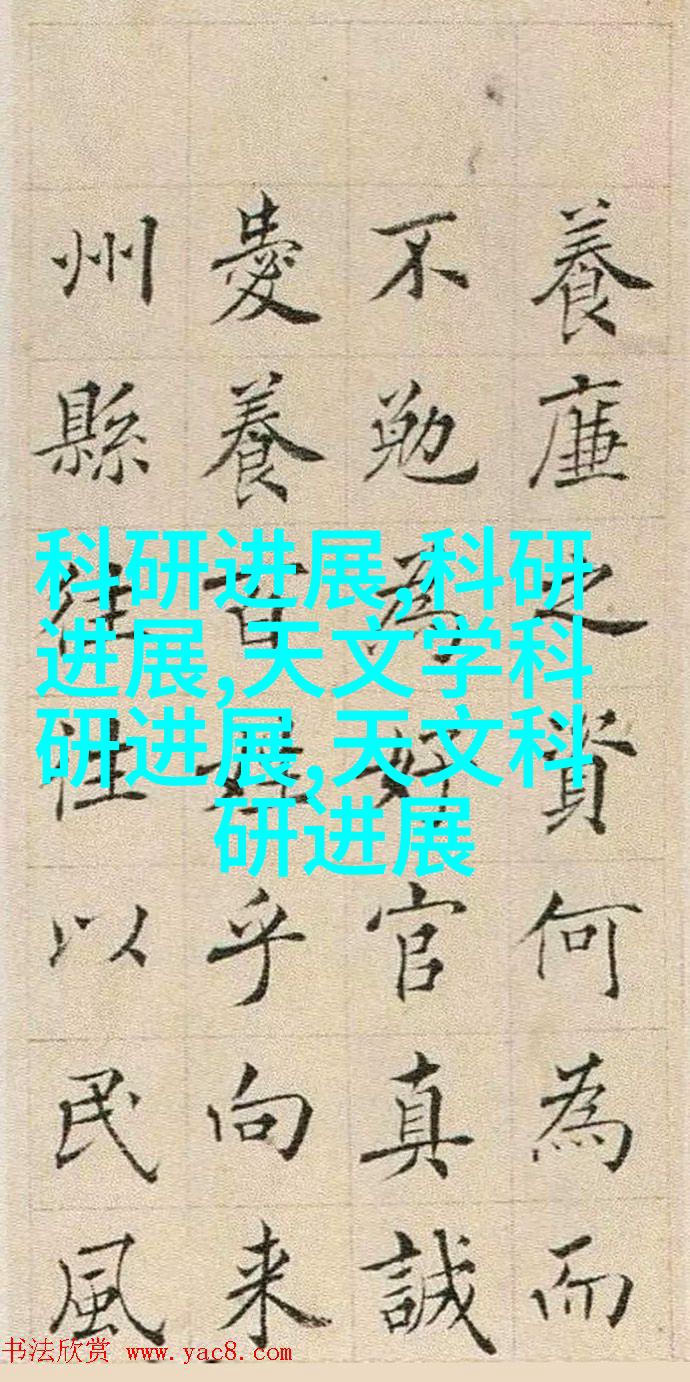 養廉之資何為而
不勉為好官真誠
愛養百姓乎向来
州縣往往以民風
科研进展,科研
进展,天文学科
研进展,天文科
研进展
书法欣赏 www.yac8.com